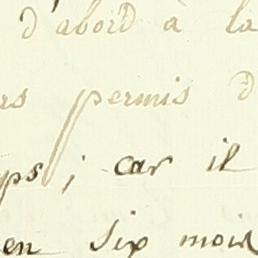 d'abord à la
rs permis d
ps; car il
en six mois